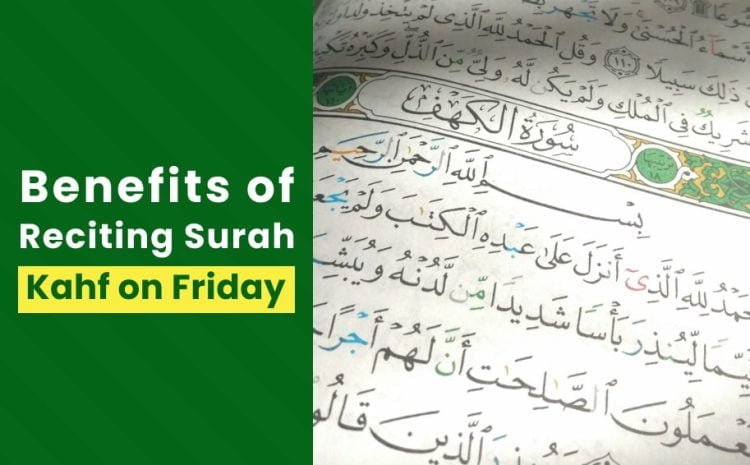 Benefits of
Reciting Surah
Kahf on Friday
ٱلْحُسْنَىٰ وَلَا تَجْهَرْ
ذَٰلِكَ سَبِيلًا ١١٠ وَقُلِ ٱلْحَمْدُ لِلَّهِ ٱلَّذِى لَمْ يَتَّخِذْ وَلَدًا
شَرِيكٌ فِى ٱلْمُلْكِ وَلَمْ يَكُن لَّهُۥ وَلِىٌّ مِّنَ ٱلذُّلِّ وَكَبِّرْهُ
سُورَةُ ٱلْكَهْفِ
بِسْمِ ٱللَّهِ ٱلرَّحْمَٰنِ ٱلرَّحِيمِ
حَمْدُ لِلَّهِ ٱلَّذِىٓ أَنزَلَ عَلَىٰ عَبْدِهِ ٱلْكِتَٰبَ وَلَمْ يَجْعَ
يِّمًا لِّيُنذِرَ بَأْسًا شَدِيدًا مِّن لَّدُنْهُ وَيُبَشِّ
عْمَلُونَ ٱلصَّٰلِحَٰتِ أَنَّ لَهُمْ أَجْرًا حَ
نذِرَ ٱلَّذِينَ قَالُو